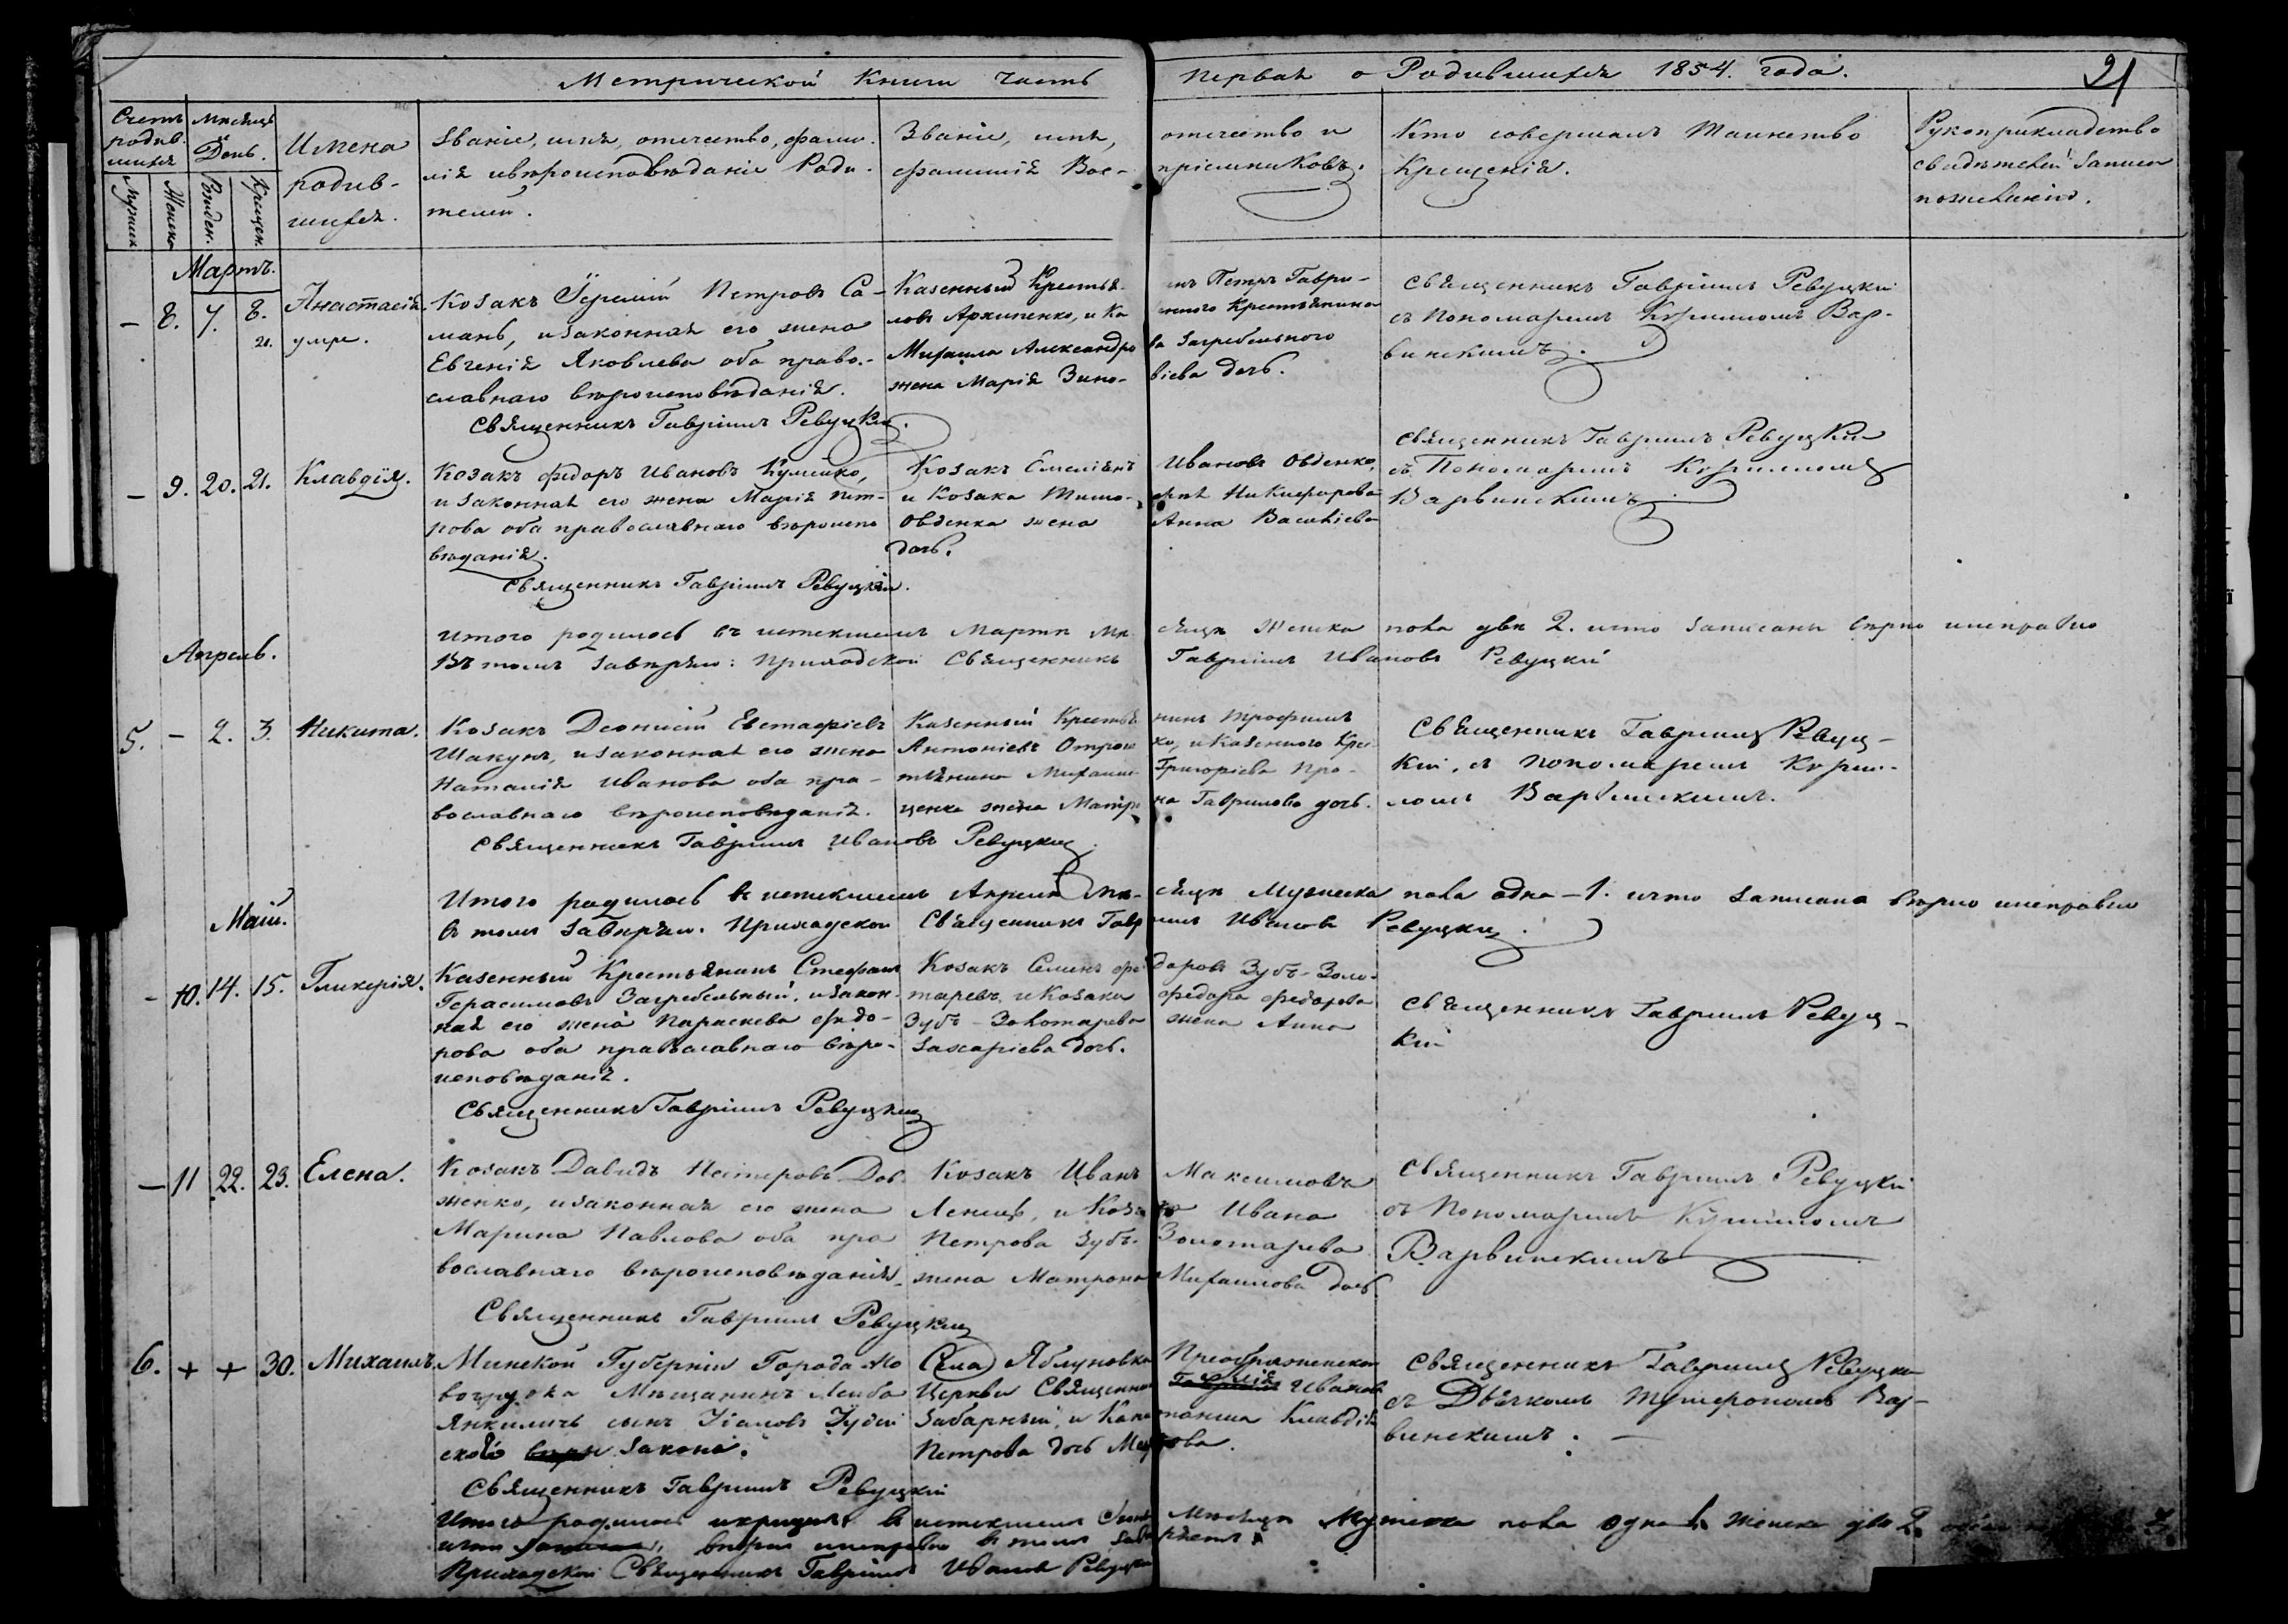 Метрической Книги Часть первая о Родившихся 1854. года.
21
Счетъ родив-шихся
Мѣсяцъ и День.
Имена родив-шихся.
Званіе, имя, отчество, фами-
лія ивѣроисповѣданіе Роди-
телей.
Званіе, имя, отчество и
фамилія Вос-пріемниковъ.
Кто совершалъ Таинство
Крещенія.
Рукоприкладство
свидѣтелей записи
пожеланію.
Мужеска
Женска
Рожден.
Крещен.
Мартъ.
– 8. 7. 8. Анастасія
21. умре.
Козакъ Іеремій Петровъ Са-
мань, изаконная его жена
Евгенія Яковлева оба право-
славнаго вѣроисповѣданія.
Священникъ Гавріилъ Ревуцкій.
Казенный Крестья-нинъ Петръ Гаври-
ловъ Архипенко, и Ка-зенного Крестьянина
Михаила Александро-ва Загребельного
жена Марія Зино-віева дочь.
Священникъ Гавріилъ Ревуцкій
съ Пономаремъ Курилломъ Вар-
винскимъ.
– 9. 20. 21. Клавдія.
Козакъ Федоръ Ивановъ Кумейко,
и законная его жена Марія Пет-
рова оба православнаго вѣроиспо
вѣданія.
Священникъ Гавріилъ Ревуцкій.
Козакъ Емеліянъ Ивановъ Овденко,
и Козака Тимо-фея Никифорова
Овденка жена Анна Василіева
дочь.
Священникъ Гавріилъ Ревуцкій
съ Пономаремъ Курилломъ
Варвинскимъ.
Итого родилось въ истекшемъ Мартѣ мѣ-сяцѣ Женска пола двѣ 2. что записаны вѣрно исправно
Въ томъ завѣряю: Приходской Священникъ Гавріилъ Ивановъ Ревуцкій
Апрель.
5. – 2. 3. Никита.
Козакъ Деонисій Евстафіевъ
Шакунъ, изаконная его жена
Наталія Иванова оба пра-
вославнаго вѣроисповѣданія.
Священникъ Гавріилъ Ивановъ Ревуцкій
Казенный Крестья-нинъ Трофимъ
Антоніевъ Отрош-ко, и Казенного Крес-
тьянина Михаила Григоріева Про-
ценка жена Матро-на Гаврилова дочь.
Священникъ Гавріилъ Ревуц-
кій, съ Пономаремъ Курил-
ломъ Варвинскимъ.
Итого родилось въ истекшемъ Апрелѣ мѣ-сяцѣ Мужеска пола одна – 1. что записана вѣрно исправно
въ томъ завѣряю. Приходской Священникъ Гавріилъ Ивановъ Ревуцкій.
Май.
– 10. 14. 15. Гликерія.
Казенный Крестьянинъ Стефанъ
Герасимовъ Загребельный, изакон-
ная его жена Параскева Федо-
рова оба православнаго вѣро-
исповѣданія.
Священникъ Гавріилъ Ревуцкій
Козакъ Семенъ Фе-доровъ Зубъ-Золо-
таревъ, и Козака Федора Федорова
Зубъ-Золотарева жена Анна
Захаріева дочь.
Священникъ Гавріилъ Ревуц-
кій
– 11 22. 23. Елена.
Козакъ Давидъ Несторовъ Дов-
женко, изаконная его жена
Марина Павлова оба пра
вославнаго вѣроисповѣданія
Священникъ Гавріилъ Ревуцкій
Козакъ Иванъ Максимовъ
и Коза-ка Ивана
Петрова Зубъ-Золотарева
жена Матрона Михаилова дочь
Священникъ Гавріилъ Ревуцкій
съ Пономаремъ Курилломъ
Варвинскимъ
6. + + 30. Михаилъ.
Минской Губерніи Города
Мѣщанинъ Лейба
сынъ Іудей
скаго закона.
Священникъ Гавріилъ Ревуцкій
Села Яблуновка Преображенской
Церкви Священникъ Ивановъ
и Клавдія
Петрова дочь
Священникъ Гавріилъ Ревуцкій
съ Дьячкомъ Вар-
винскимъ.
Итого родилось въ истекшемъ мѣсяцѣ Мужеска пола одна 1. Женска двѣ 2.
вѣрно исправно въ томъ
Приходской Священникъ Гавріилъ Ивановъ Ревуцкій